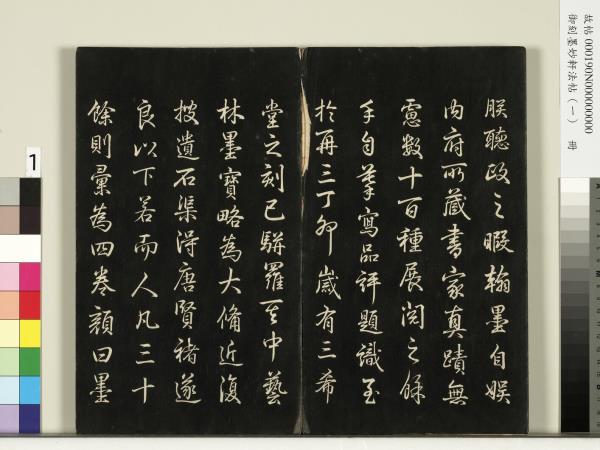 朕聽政之暇翰墨自娛
內府所藏書家真蹟無
慮數十百種展閱之餘
手自摹寫品評題識至
於再三丁卯歲有三希
堂之刻已駢羅其中藝
林墨寶略為大備近復
披遺石渠得唐賢褚遂
良以下若而人凡三十
餘則彙為四卷顏曰墨
故帖 000190N000000000
御刻墨妙軒法帖（一） 冊
1